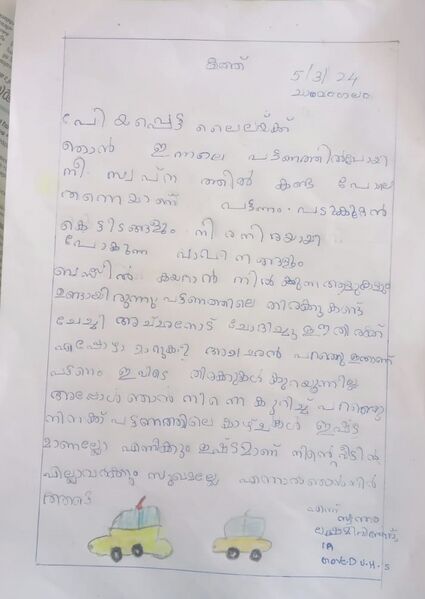 കത്ത്
5/3/24
ചാമംഗലം
പ്രിയപ്പെട്ട ലൈലയ്ക്ക്
ഞാൻ ഇന്നലെ പട്ടണത്തിൽപോയി
നീ സ്വപ്ന ത്തിൽ കണ്ട പോലെ
തന്നെയാണ് പട്ടണം. പടുകൂറ്റൻ
കെട്ടിടങ്ങളും നിരനിരയായി
പോകുന്ന വാഹനങ്ങളും
ബസ്സിൽ കയറാൻ നിൽക്കുന്ന ആളുകളും
ഉണ്ടായിരുന്നു പട്ടണത്തിലെ തിരക്കു കണ്ട്
ചേച്ചി അച്ഛനോട് ചോദിച്ചു ഈ തിരക്ക്
എപ്പോഴാ മാറുക? അച്ഛൻ പറഞ്ഞു ഇതാണ്
പട്ടണം ഇവിടെ തിരക്കുകൾ കുറയുന്നില്ല
അപ്പോൾ ഞാൻ നിന്നെ കുറിച്ച് പറഞ്ഞു
നിനക്ക് പട്ടണത്തിലെ കാഴ്ചകൾ ഇഷ്ട
മാണല്ലോ എനിക്കും ഇഷ്ടമാണ് നിന്റെ വീട്ടിൽ
എല്ലാവർക്കും സുഖമല്ലേ എന്നാൽ ഞാൻ നിർ
ത്തട്ടെ
എന്ന്
സ്വന്തം